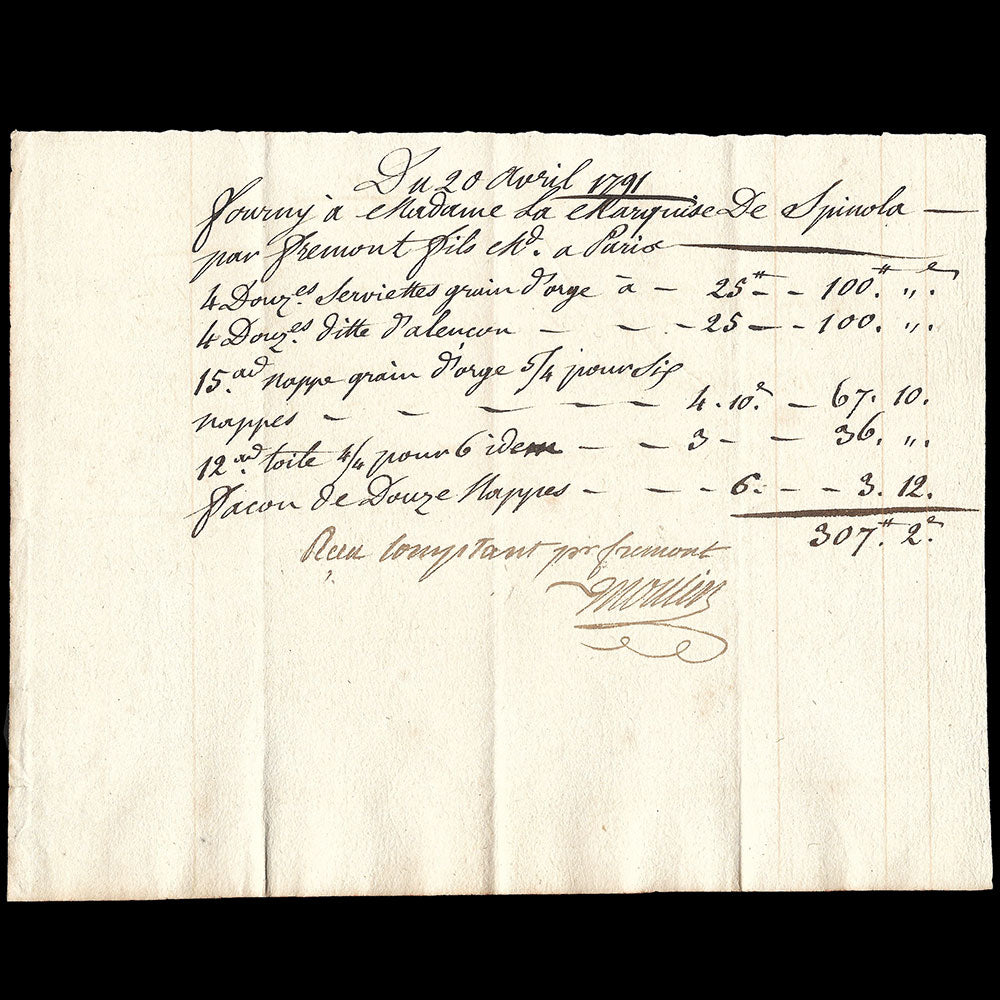 Du 20 Avril 1791
fourny à Madame La Marquise De Spinola —
par fremont fils Md. a Paris
4 Douz.es Serviettes grain d'orge à — 25tt — - 100.tt „.s
4 Douz.es ditte d'alençon — - — - 25 — - 100. „.
15.au nappe grain d'orge 5/4 pour Six
nappes — - — - — - — 4. 10.s — 67. 10.
12.au toile 4/4 pour 6 idem — - — 3 — - 36. „.
facon de Douze Nappes — - — - 6. — - 3. 12.
307.tt 2.s
Recu Comptant pr fremont
moulin